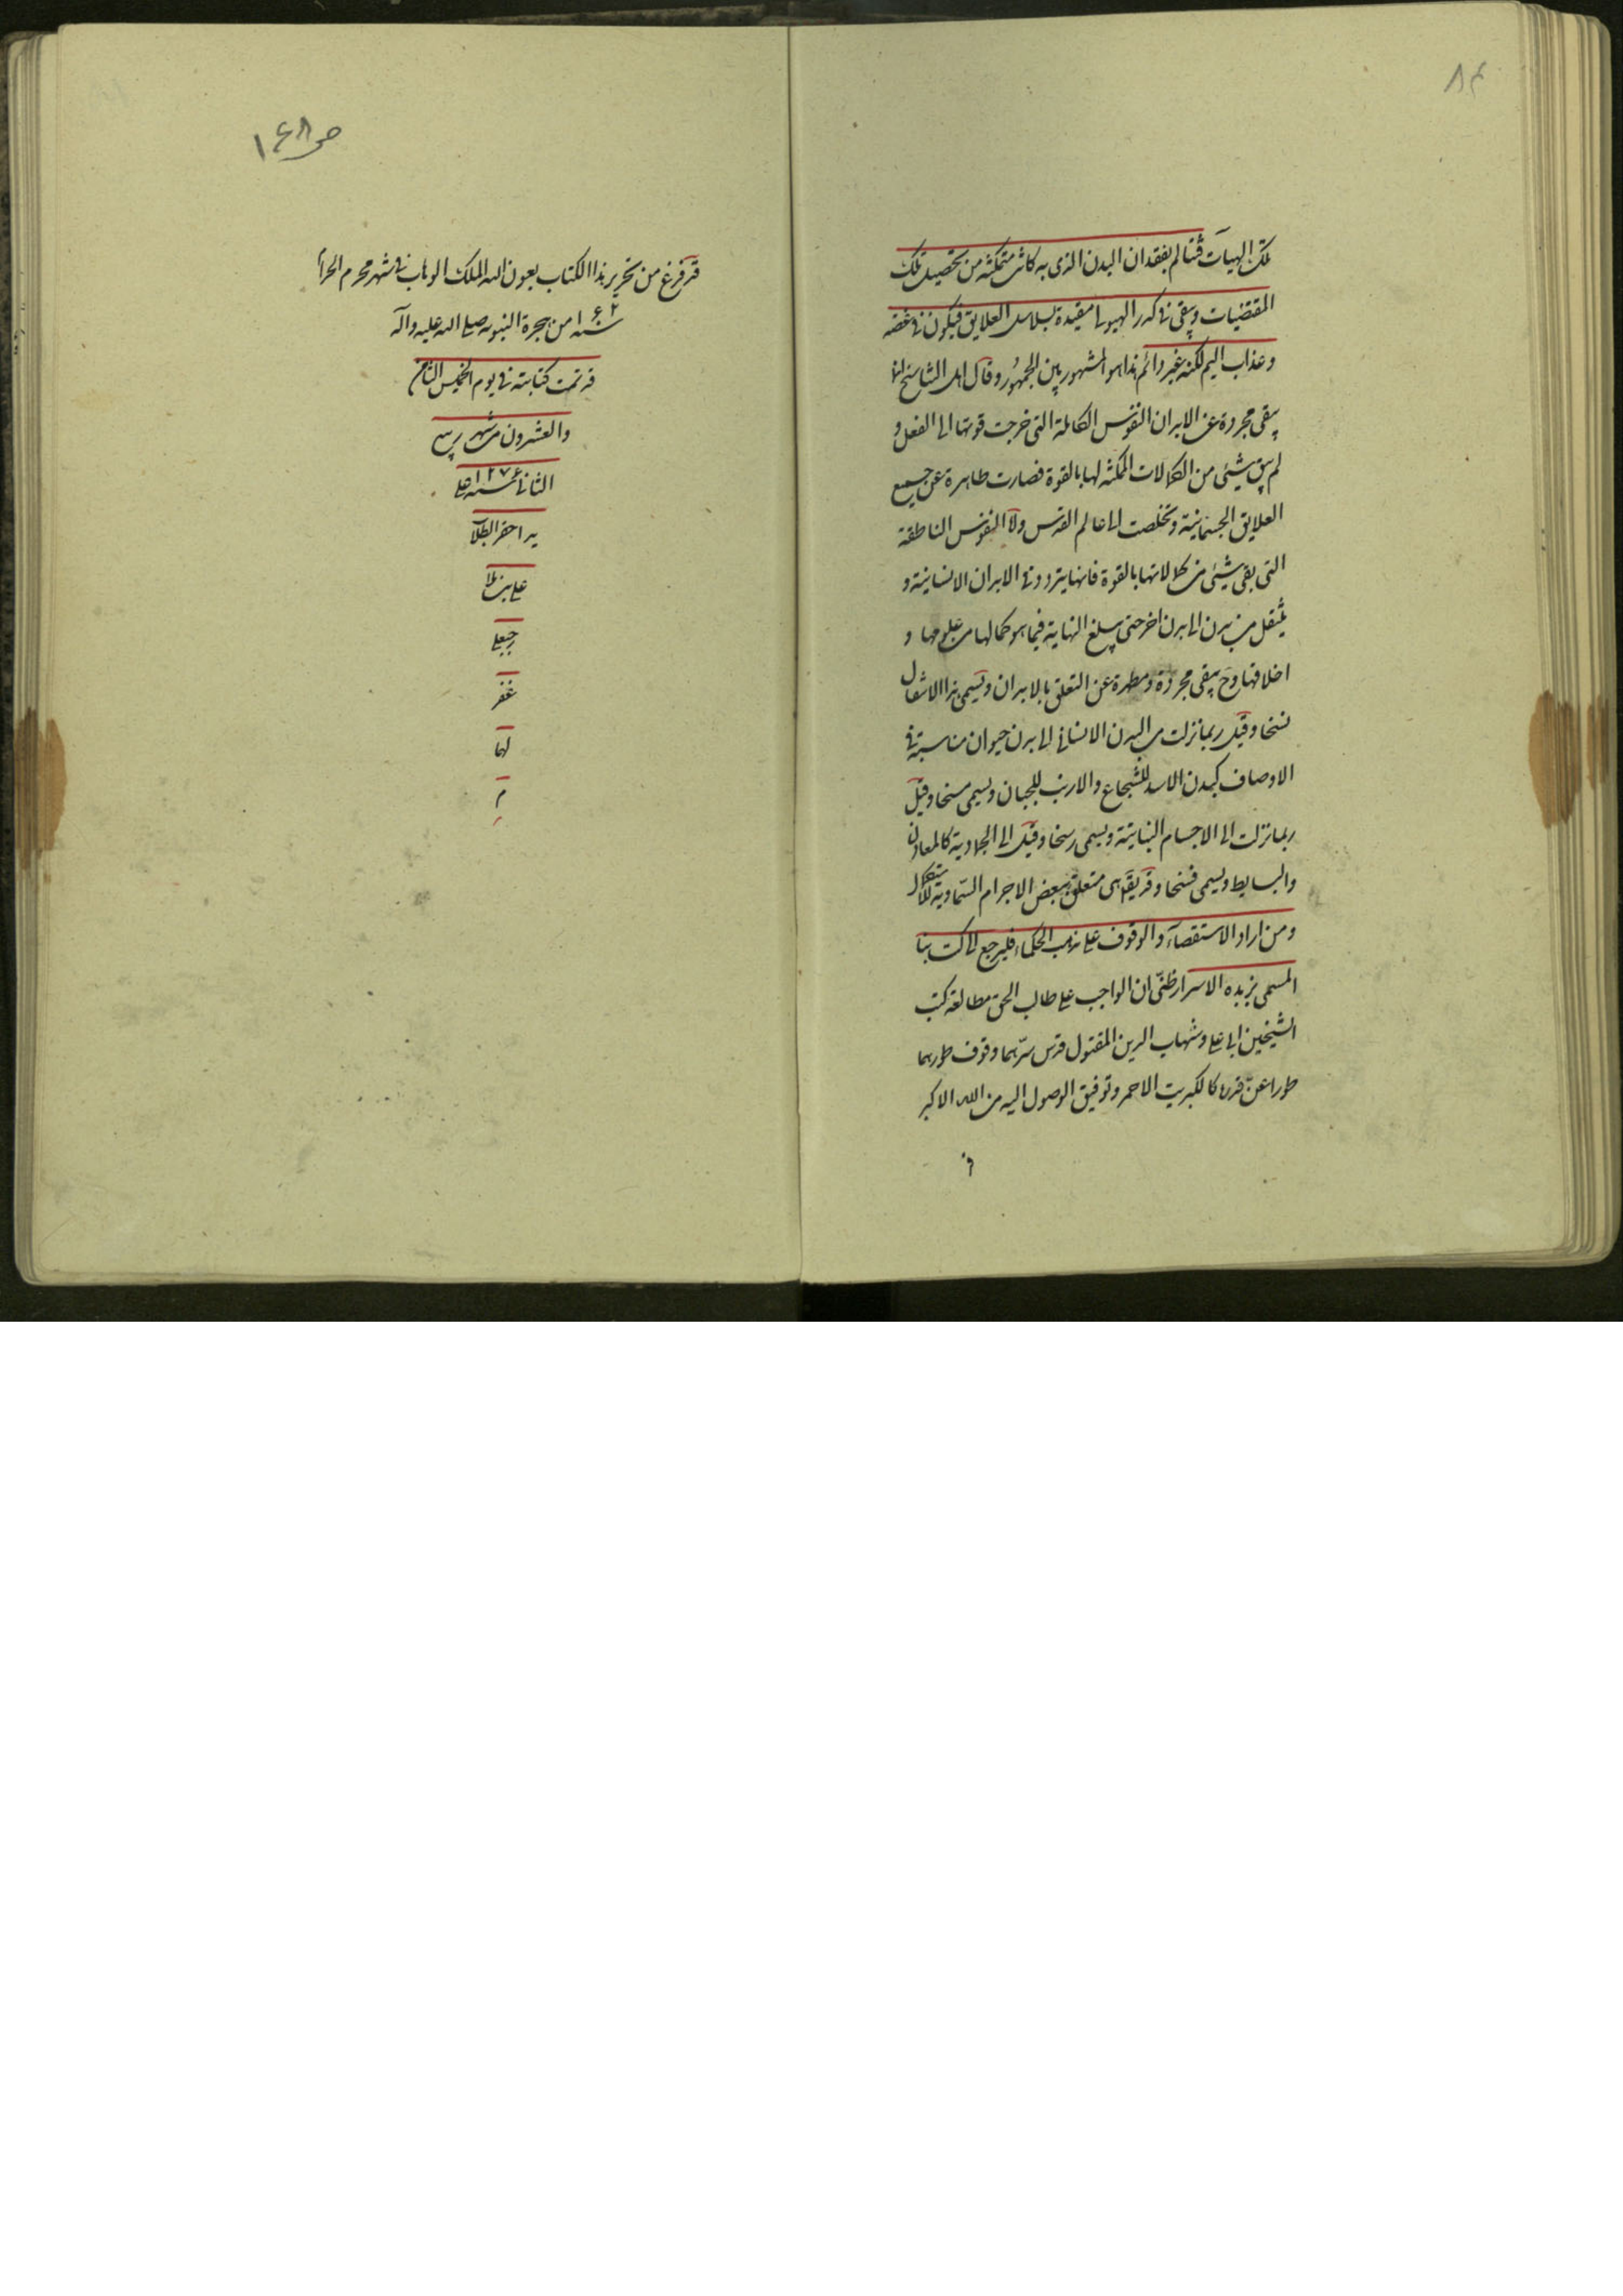 ٨٤
تلك الهيآت فتتالم بفقدان البدن الذى به كانت متمكنة من تحصيل تلك
المقتضيات ويبقى فى كدر الهيولى مقيدة بسلاسل العلايق فيكون فى غصة
وعذاب اليم لكنه غير دائم هذا هو المشهور بين الجمهور وقال اهل التناسخ انما
يبقى مجردة عن الابدان النفوس الكاملة التى خرجت قوتها الى الفعل و
لم يبق شيئى من الكمالات الممكنة لها بالقوة فصارت طاهرة عن جميع
العلايق الجسمانية وتخلصت الى عالم القدس واما النفوس الناطقة
التى بقى شيئى من كمالاتها بالقوة فانها يتردد فى الابدان الانسانية و
ينتقل من بدن الى بدن اخر حتى يبلغ النهاية فيما هو كمالها من علومها و
اخلاقها وح يبقى مجردة ومطهرة عن التعلق بالابدان ويسمى هذا الانتقال
نسخا وقيل ربما نزلت من البدن الانسانى الى بدن حيوان مناسبة فى
الاوصاف كبدن الاسد للشجاع والارنب للجبان ويسمى مسخا وقيل
ربما نزلت الى الاجسام النباتية ويسمى رسخا وقيل الى الجمادية كالمعادن
والبسايط ويسمى فسخا وقد يقال هى متعلق ببعض الاجرام السماوية للاستكمال
ومن اراد الاستقصاء والوقوف على مذهب الحكماء فليرجع الى كتابنا
المسمى بزبده الاسرار ظنى ان الواجب على طالب الحق مطالعة كتب
الشيخين ابى على وشهاب الدين المقتول قدس سرهما وقوف طورهما
طورا عن كالكبريت الاحمر وتوفيق الوصول اليه من الله الاكبر
قد
ص ١٤٨
قد فرغ من تحرير هذا الكتاب بعون الله الملك الوهاب فى شهر محرم الحرام
سنة ١٠٤٢ من هجرة النبويه صلى الله عليه وآله
قد تمت كتابته فى يوم الخميس الثامن
والعشرون من شهر ربيع
الثانى سنة ١٢٧٤ على
يد احقر الطلاب
على بن ملا
رجبعلى
غفر
لهما
م